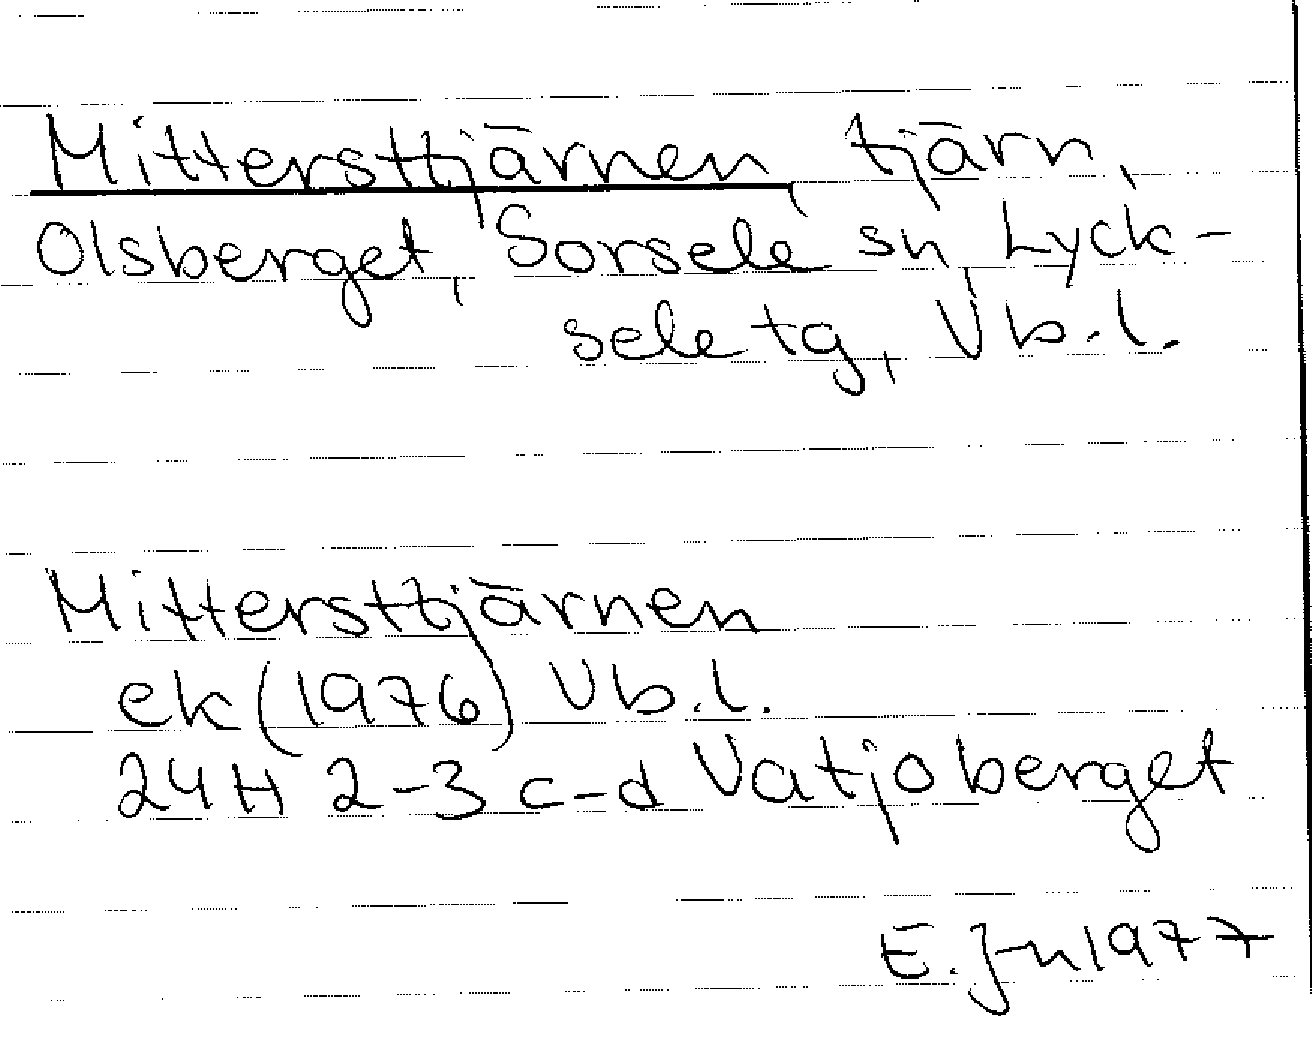 Mittersttjärnen, tjärn,
Olsberget, Sorsele sn, Lyck-
sele tg, Vb.l.
Mittersttjärnen
ek (1976) Vb.l.
24H 2-3 c-d Vatjoberget
E. J-n 1977